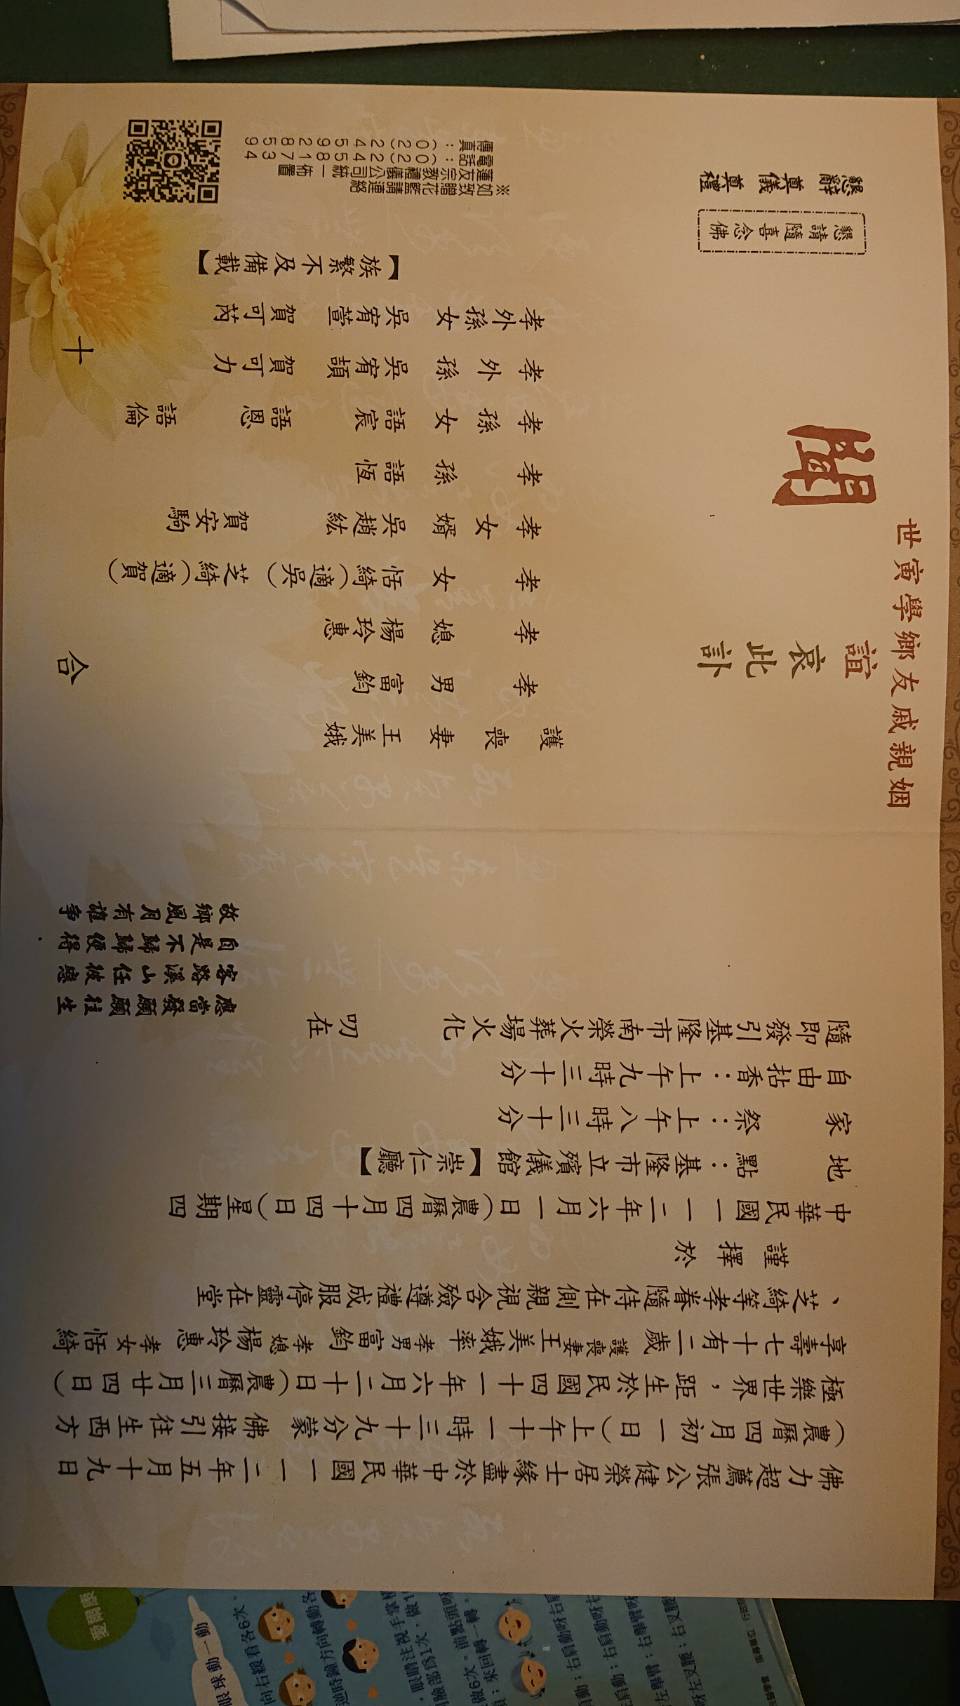 佛力超薦張公健榮居士緣盡於中華民國一一二年五月十九日
（農曆四月初一日）上午十一時三十九分蒙 佛接引往生西方
極樂世界，距生於民國四十一年六月二十日（農曆三月廿四日）
享壽七十有二歲 護喪妻 王美娥 率 孝男 富鈞 孝媳 楊玲惠 孝女 恬綺
、芝綺等孝眷隨侍在側親視含殮遵禮成服停靈在堂
謹擇於
中華民國一一二年六月一日（農曆四月十四日）星期四
地點：基隆市立殯儀館【崇仁廳】
家祭：上午八時三十分
自由拈香：上午九時三十分
隨即發引基隆市南榮火葬場火化 叨在
應當發願願往生
客路溪山任彼戀
自是不歸歸便得
故鄉風月有誰爭
姻親戚友鄉學寅世
誼
哀此訃
聞
護喪妻 王美娥
孝男 富鈞
孝媳 楊玲惠
孝女 恬綺（適吳） 芝綺（適賀）
孝女婿 吳趙紘 賀安駒
孝孫 語恆
孝孫女 語宸 語恩 語倫
孝外孫 吳宥頡 賀可力
孝外孫女 吳宥萱 賀可芮
【族繁不及備載】
合十
懇請隨喜念佛
懇辭奠儀奠禮
※如致贈花籃請連絡
蓮友宗教禮儀公司統一佈置
電話：
傳真：
眼球動一動